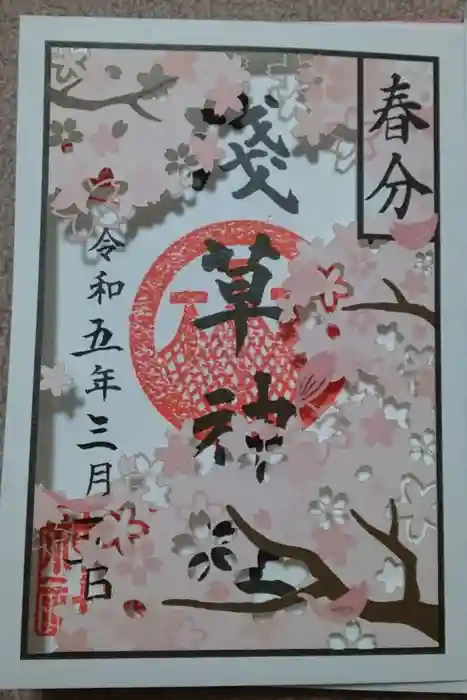 春分
淺草神
令和五年三月 日